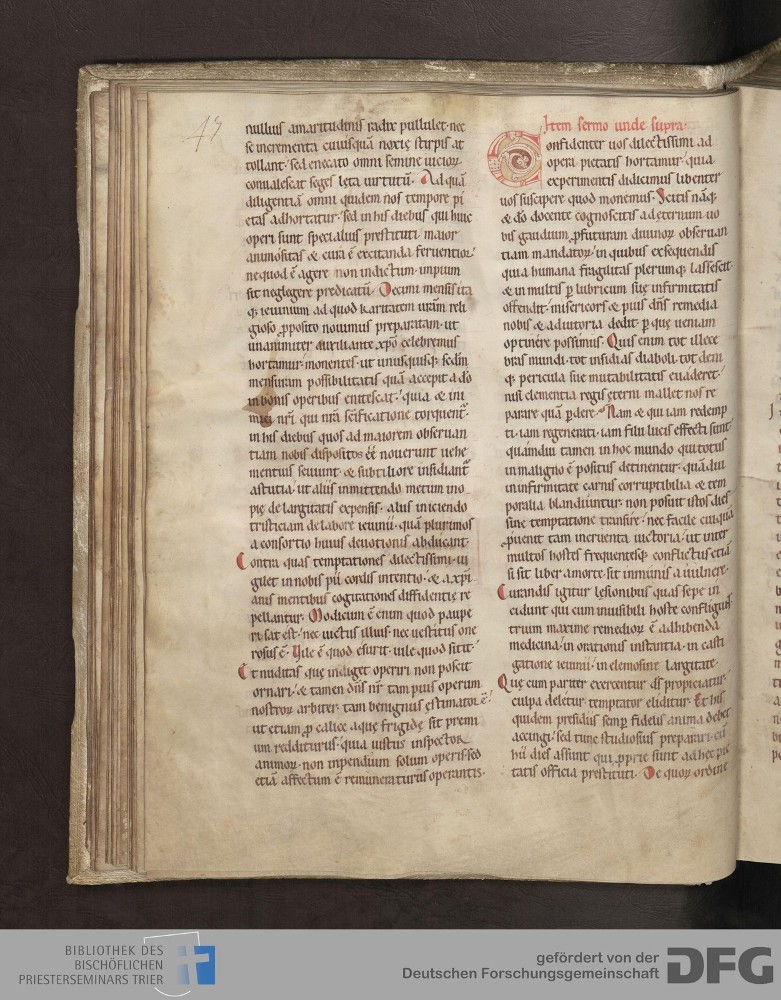 nullius amaritudinis radix pullulet· nec
se incrementa cuiusquā noxię stirpis at
tollant· sed enecato omni semine uicioꝝ
conualescat seges lęta uirtutū· Ad quā
diligentiā omni quidem nos tempore pi
etas adhortatur· sed in his diebus qui huic
operi sunt specialius prestituti· maior
animositas & cura ē excitanda feruentior·
ne quod ē agere non indictum· impium
sit neglegere predicatū· Decimi mensis ita
q; ieiunium ad quod karitatem urām reli
gioso ꝓposito nouimus preparatam· ut
unanimiter auxiliante xp̄o celebremus
hortamur· monentes· ut unusquisq; sedm̄
mensuram possibilitatis quā accepit a dō
in bonis operibus enitescat· quia & ini
mici nr̄i qui nrā sc̄ificatione torquent᷑·
in his diebus quos ad maiorem obseruan
tiam nobis dispositos ēē nouerunt uehe
mentius seuiunt· & subtiliore insidiant᷑
astutia· ut aliis inmittendo metum ino
pię de largitatis expensis· aliis iniciendo
tristiciam de labore ieiunii· quā plurimos
a consortio huius deuotionis abducant·
Contra quas temptationes dilectissimi· ui
gilet in nobis pii cordis intentio· & a xp̄i
anis mentibus cogitationes diffidentię re
pellantur· Modicum ē enim quod paupe
ri sat est· nec uictus illius· nec uestitus one
rosus ē· Vile ē quod esurit· uile quod sitit·
Et nuditas quę indiget operiri non poscit
ornari· & tamen dn̄s nr̄ tam pius operum
nostroꝝ arbiter· tam benignus ęstimator ē·
ut etiam ꝓ calice aquę frigidę sit premi
um redditurus· quia iustus inspector
animoꝝ· non inpendium solum operis· sed
etiā affectum ē remuneraturus operantis·
Item sermo unde supra·
Confidenter uos dilectissimi ad
opera pietatis hortamur· quia
experimentis didicimus libenter
uos suscipere quod monemus· Scitis nāq;
& dō docente cognoscitis ad eternum uo
bis gaudium ꝓfuturam diuinoꝝ obseruan
tiam mandatoꝝ· in quibus exsequendis
quia humana fragilitas plerumq; lassescit·
& in multis ꝑ lubricum suę infirmitatis
offendit· misericors & pius dn̄s remedia
nobis & adiutoria dedit· ꝑ quę ueniam
optinere possimus· Quis enim tot illece
bras mundi· tot insidias diaboli· tot deni
q; pericula sue mutabilitatis euaderet·
nisi clementia regis ęterni mallet nos re
parare quā ꝑdere· Nam & qui iam redemp
ti· iam regenerati· iam filii lucis effecti sunt·
quamdiu tamen in hoc mundo qui totus
in maligno ē positus detinentur· quādiu
in infirmitate carnis corruptibilia & tem
poralia blandiuntur· non possunt istos dies
sine temptatione transire· nec facile cuiquā
ꝓuenit tam incruenta uictoria· ut inter
multos hostes frequentesq; conflictus etiā
si sit liber a morte· sit inmunis a uulnere·
Curandis igitur lęsionibus quas sepe in
cidunt qui cum inuisibili hoste confligunt·
trium maxime remedioꝝ ē adhibenda
medicina· in orationis instantia· in casti
gatione ieiunii· in elemosinę largitate·
Quę cum pariter exercentur ds̄ propiciatur·
culpa deletur· temptator eliditur· Et his
quidem presidiis semꝑ fidelis anima debet
accingi· sed tunc studiosius preparari· cū
hii dies assunt qui ꝓprie sunt ad hec pie
tatis officia prestituti· De quoꝝ ordine
BIBLIOTHEK DES
BISCHÖFLICHEN
PRIESTERSEMINARS TRIER
gefördert von der
Deutschen Forschungsgemeinschaft
DFG